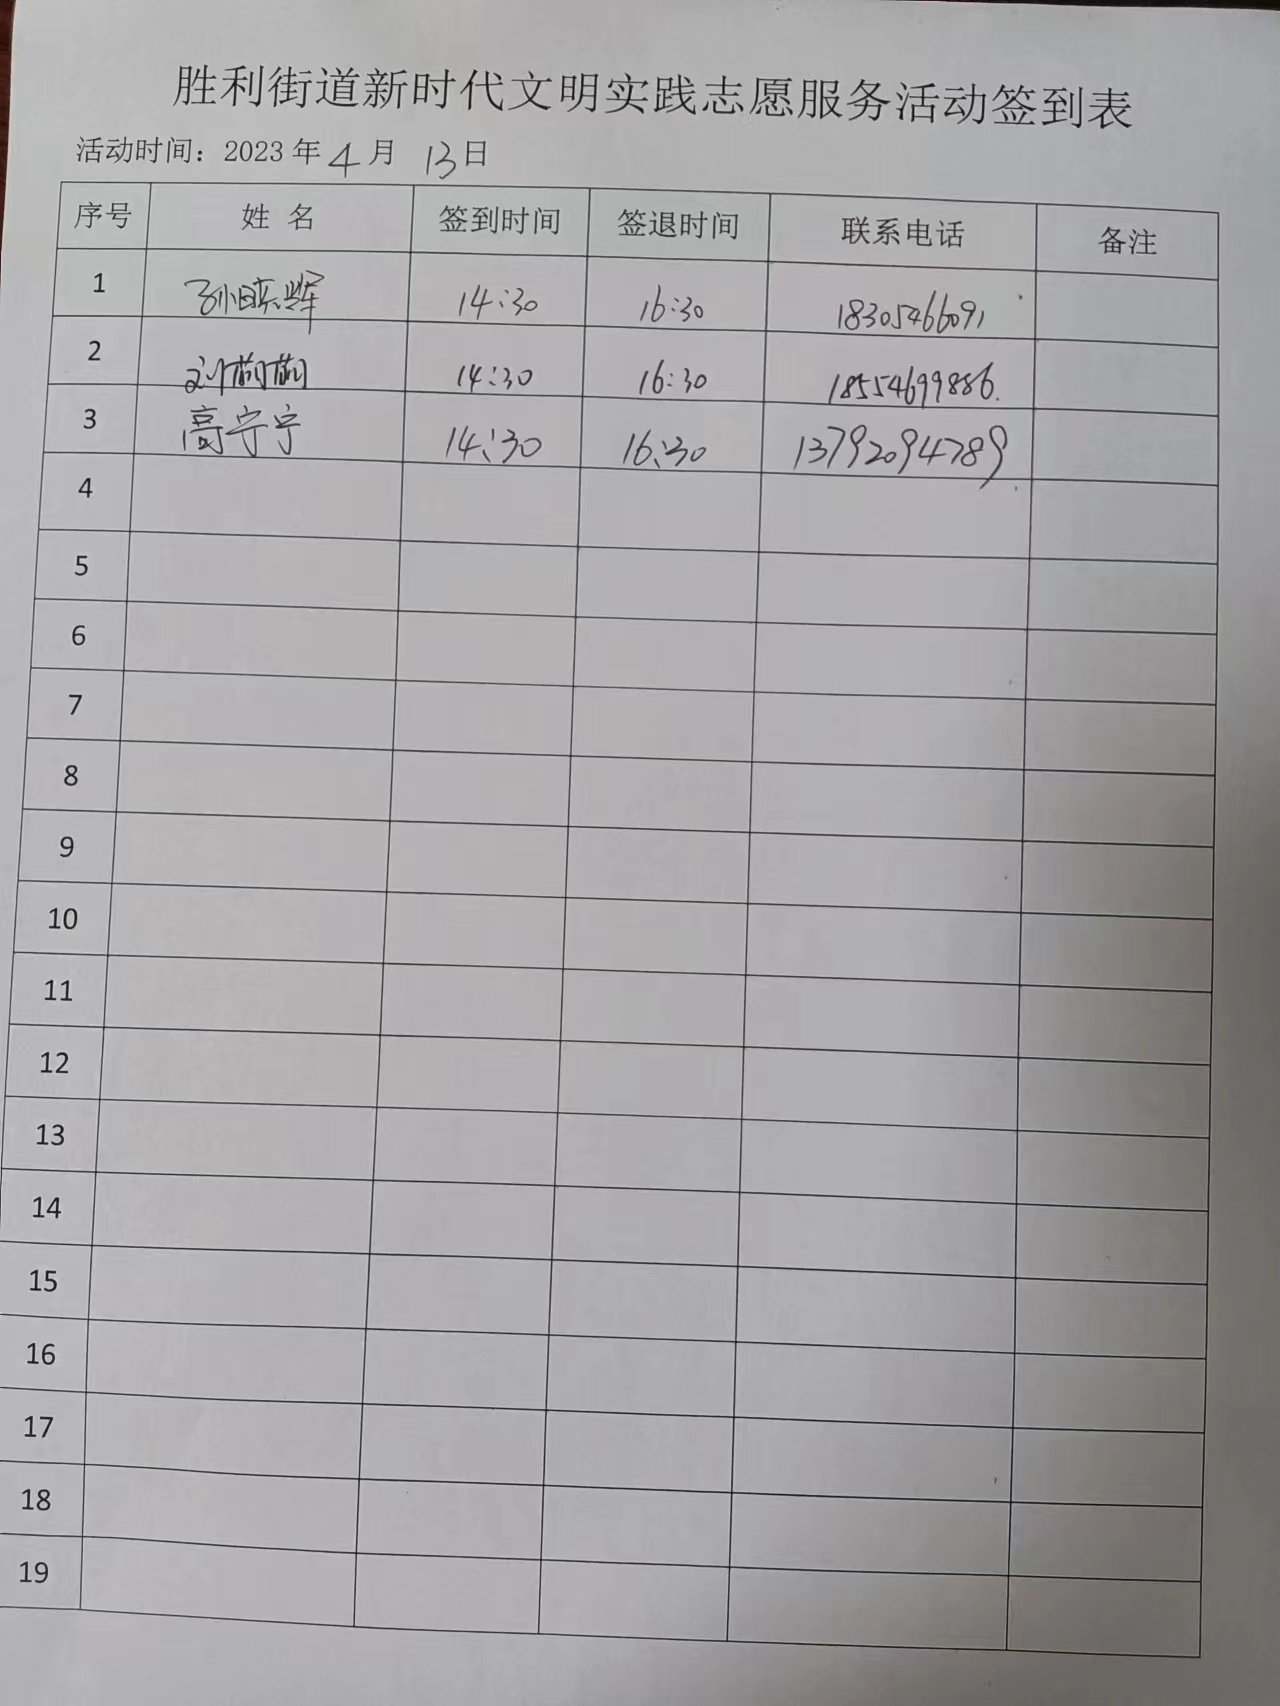 胜利街道新时代文明实践志愿服务活动签到表
活动时间：2023年4月 13日
序号 姓 名 签到时间 签退时间 联系电话 备注
1 孙 辉 14:30 16:30 18305466091
2 刘 14:30 16:30 18554699886.
3 高宁宁 14:30 16:30 13792094789
4
5
6
7
8
9
10
11
12
13
14
15
16
17
18
19